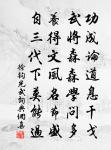 功成論道息干戈
武將森森學問多
養得文風名節盛
自三代下莫能過
徐鈞光武詩興開書